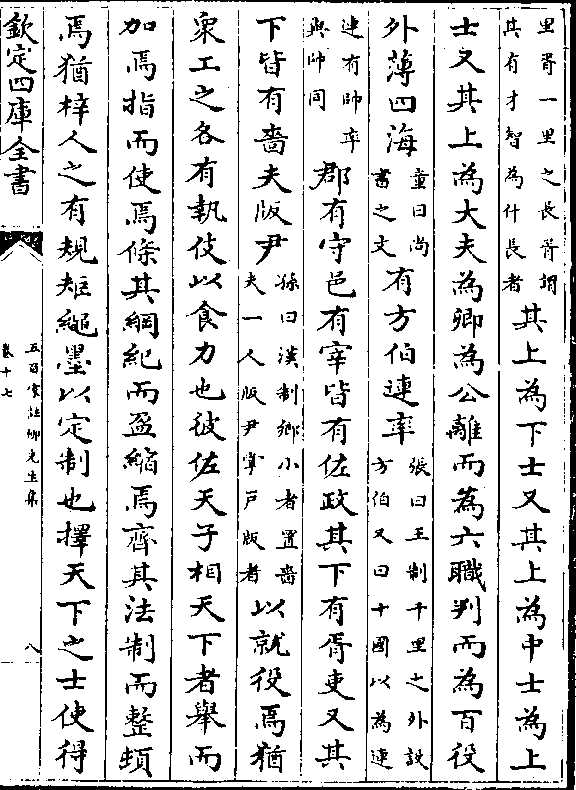 里胥一里之長胥謂
其有才智為什長者
其上為下士又其上為中士為上
士又其上為大夫為卿為公離而為六職判而為百役
外薄四海
童曰尚
書之文
有方伯連率
張曰王制千里之外設
方伯又曰十國以為連
連有帥率
與帥同
郡有守邑有宰皆有佐政其下有胥吏又其
下皆有嗇夫版尹
孫曰漢制鄉小者置嗇
夫一人版尹掌戸版者
以就役焉猶
衆工之各有執伎以食力也彼佐天子相天下者舉而
加焉指而使焉條其綱紀而盈縮焉齊其法制而整頓
焉猶梓人之有規矩繩墨以定制也擇天下之士使得
欽定四庫全書
五百家註柳先生集
卷十七
八